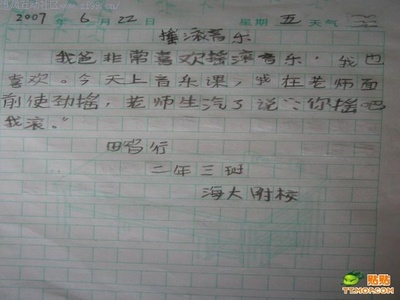 2007 年 6 月 22 日 星期 五 天气
摇滚音乐
我爸非常喜欢摇滚音乐,我也
喜欢。今天上音乐课,我在老师面
前使劲摇,老师生汽了说:“你摇吧
我滚。”
田智行
二年三班
海大附校
贴贴
TZMOP.COM